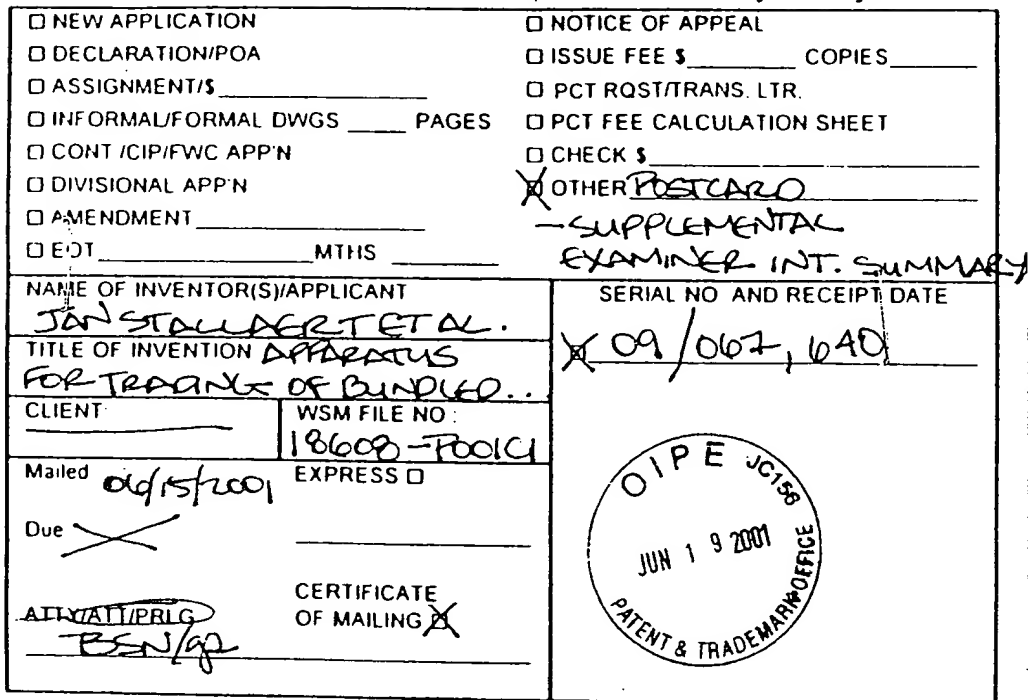 ☐ NEW APPLICATION
☐ DECLARATION/POA
☐ ASSIGNMENT/$
☐ INFORMAL/FORMAL DWGS ____ PAGES
☐ CONT /CIP/FWC APP'N
☐ DIVISIONAL APP'N
☐ AMENDMENT
☐ EOT ____ MTHS ____
☐ NOTICE OF APPEAL
☐ ISSUE FEE $ ____ COPIES ____
☐ PCT RQST/TRANS. LTR.
☐ PCT FEE CALCULATION SHEET
☐ CHECK $
☒ OTHER POSTCARD
- SUPPLEMENTAL
EXAMINER INT. SUMMARY
NAME OF INVENTOR(S)/APPLICANT
JAN STALLAERT ET AL.
TITLE OF INVENTION APPARATUS
FOR TRADING OF BUNDLED...
CLIENT
WSM FILE NO:
18608-P001C1
Mailed 06/15/2001
EXPRESS ☐
Due
ATTY/ATT/PRLG
BSN/g2
CERTIFICATE
OF MAILING ☒
SERIAL NO AND RECEIPT DATE
☒ 09/067,640
OIPE JC156
JUN 19 2001
PATENT & TRADEMARK OFFICE